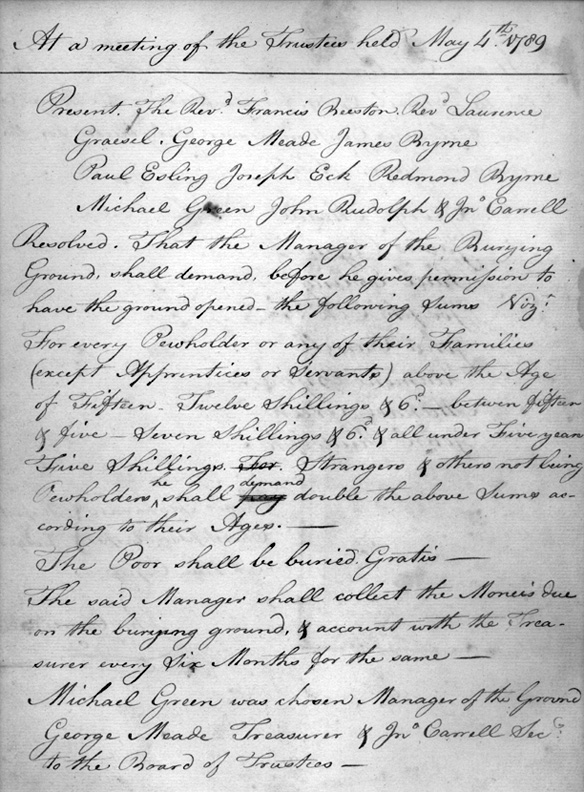 At a meeting of the Trustees held May 4th. 1789
Present. The Revd. Francis Beeston. Revd. Laurence
Graesel. George Meade James Byrne
Paul Esling Joseph Eck Redmond Byrne
Michael Green John Rudolph & Jno. Carrell
Resolved. That the Manager of the Burying
Ground, shall demand, before he gives permission to
have the ground opened - the following Sums Vizt.
For every Pewholder or any of their Families
(except Apprentices or Servants) above the Age
of Fifteen - Twelve Shillings & 6d. - betwen fifteen
& five - Seven Shillings & 6d. & all under Five years
Five Shillings. For. Strangers & others not being
Pewholders he shall pay demand double the above Sums ac-
cording to their Ages. -
The Poor shall be buried Gratis -
The said Manager shall collect the Moneis due
on the burying ground, & account with the Trea-
surer every Six Months for the same -
Michael Green was chosen Manager of the Ground
George Meade Treasurer & Jno. Carrell Secy.
to the Board of Trustees -